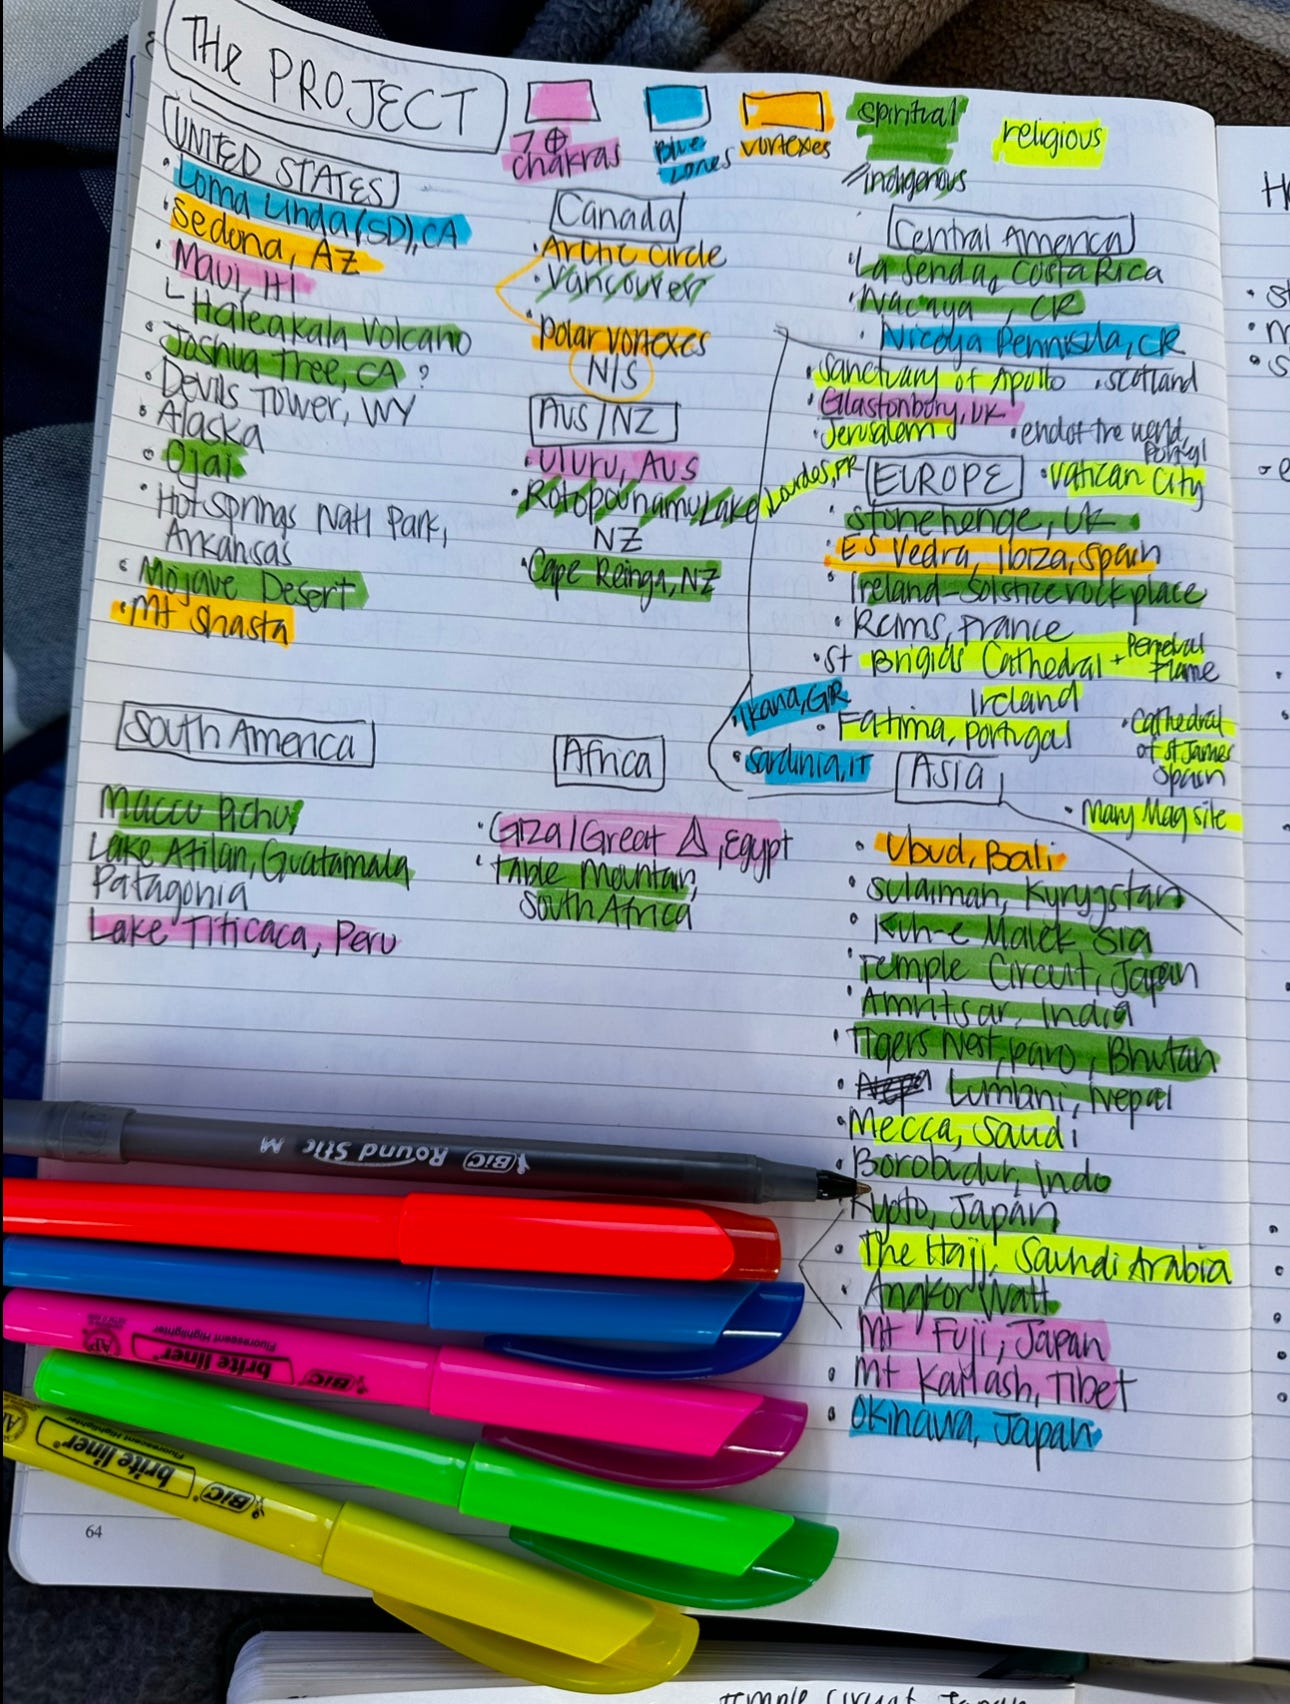 THE PROJECT
7 ⊕ chakras
Blue Zones
vortexes
spiritual
/indigenous
religious
UNITED STATES
• Loma Linda (SD), CA
• Sedona, AZ
• Maui, HI
└ Haleakala Volcano
• Joshua Tree, CA ?
• Devils Tower, WY
• Alaska
• Ojai
• Hot Springs Natl Park,
Arkansas
• Mojave Desert
• Mt Shasta
Canada
• Arctic Circle
• Vancouver
• polar vortexes
N/S
AUS/NZ
• Uluru, AUS
• Rotopounamu Lake
NZ
• Cape Reinga, NZ
Central America
• La Senda, Costa Rica
• Nacaya, CR
• Nicoya Pennisula, CR
• Sanctuary of Apollo • Scotland
• Glastonbury, UK
• Jerusalem • end of the world,
Portugal
Lourdes, FR
EUROPE
• Vatican City
• Stonehenge, UK
• Es Vedra, Ibiza, Spain
• Ireland - Solstice rock place
• Reims, France
• St Brigids Cathedral + Perpetual
Flame
Ireland
• Ikaria, GR
• Fatima, Portugal
• Cathedral
of St James
Spain
• Sardinia, IT
• Mary Mag site
South America
Maccu Pichu
Lake Atilan, Guatamala
Patagonia
Lake Titicaca, Peru
Africa
• Giza / Great △, Egypt
• Table Mountain,
South Africa
ASIA
• Ubud, Bali
• Sulaiman, Kyrygstan
• Kuh-e Malek Sia
• Temple Circuit, Japan
• Amritsar, India
• Tigers Nest, paro, Bhutan
• Lumbini, Nepal
• Mecca, Saudi
• Borobudur, Indo
Kyoto, Japan
• The Hajj, Saundi Arabia
• Angkor Watt
Mt Fuji, Japan
• Mt Kailash, Tibet
• Okinawa, Japan
BIC Round Stic M
Fluorescent Highlighter
brite liner BIC
Fluorescent Highlighter
brite liner® BIC
64
Temple Circuit Japan